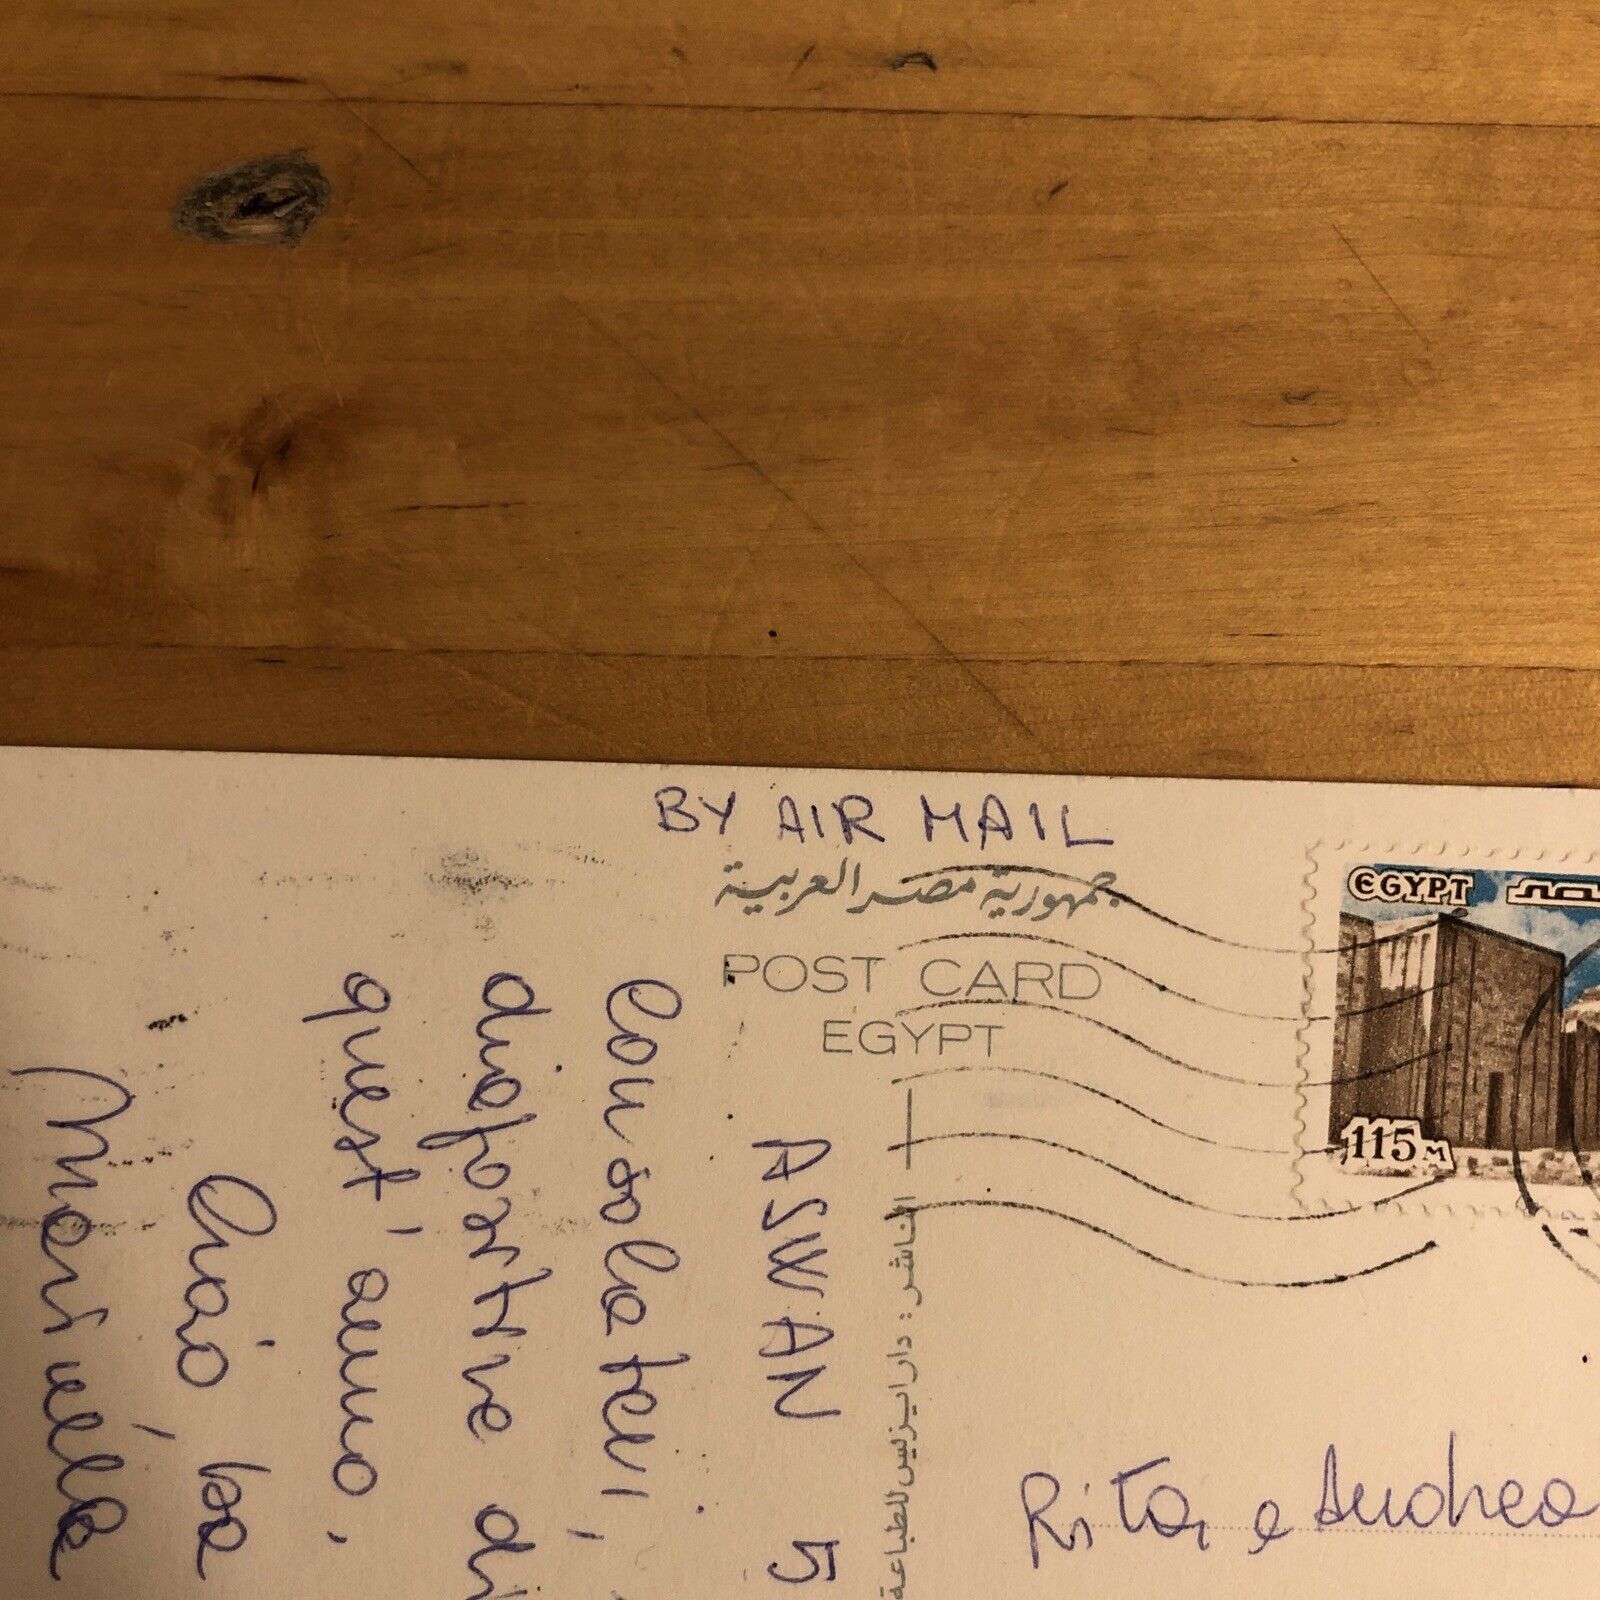 BY AIR MAIL
جمهورية مصر العربية
POST CARD
EGYPT
EGYPT مصر
115 M
ASWAN 5
Consolatevi,
diapositive di
quest'anno,
Ciao, ba
Marinella
الناشر : دار ايزيس للطباعة
Rita e Andrea